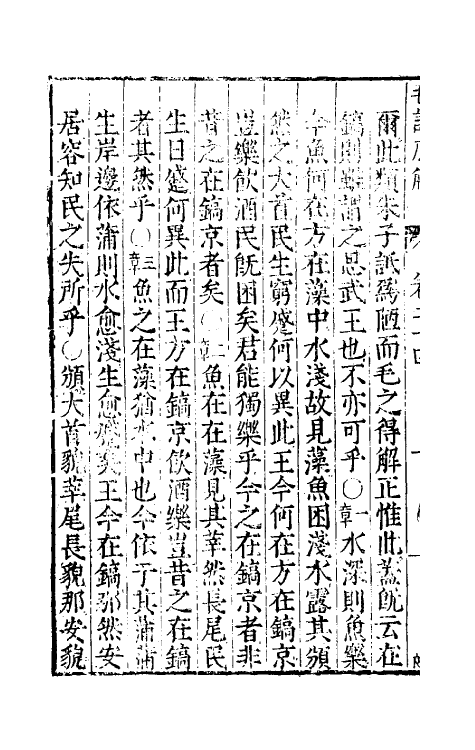 爾此類朱子詆爲陋而毛之得解正惟此蓋既云在
鎬則雖謂之思武王也不亦可乎〇一章水深則魚樂
今魚何在方在藻中水淺故見藻魚困淺水露其頒
然之大首民生窮蹙何以異此王今何在方在鎬京
豈樂飲酒民既困矣君能獨樂乎今之在鎬京者非
昔之在鎬京者矣〇二章魚在在藻見其莘然長尾民
生日蹙何異此而王方在鎬京飲酒樂豈昔之在鎬
者其然乎〇三章魚之在藻猶水中也今依于其蒲蒲
生岸邊依蒲則水愈淺生愈蹙矣王今在鎬那然安
居容知民之失所乎〇頒大首貌莘尾長貌那安貌